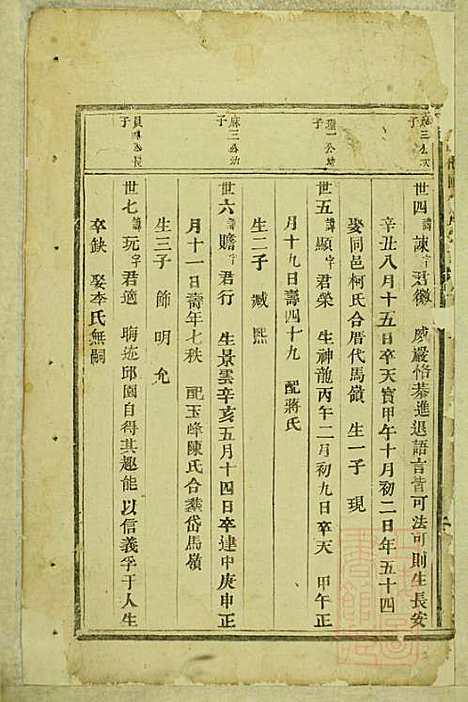 世四諱諫字君徽 處嚴恪恭進退語言皆可法可則生長安
辛丑八月十五日卒天寶甲午十月初二日年五十四
娶同邑柯氏合厝代馬嶺 生一子 現
世五諱顯字君榮 生神龍丙午二月初九日卒天 甲午正
月十九日壽四十九 配蔣氏
生二子 臧 熙
世六諱贍字君行 生景雲辛亥五月十四日卒建中庚申正
月十一日壽年七秩 配玉峰陳氏合葬岱馬嶺
生三子 飾 明 允
世七諱玩字君適 晦迹邱園自得其趣能以信義孚于人生
卒缺 娶李氏無嗣